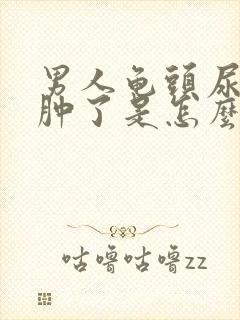 男人龟頭尿
肿了是怎麽
咕噜咕噜zz